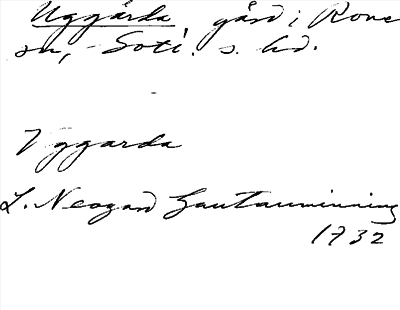 Uggårda gård i Rone
sn, - Soti. s. hd.
Uggarda
L. Neogard Gautauminning
1732